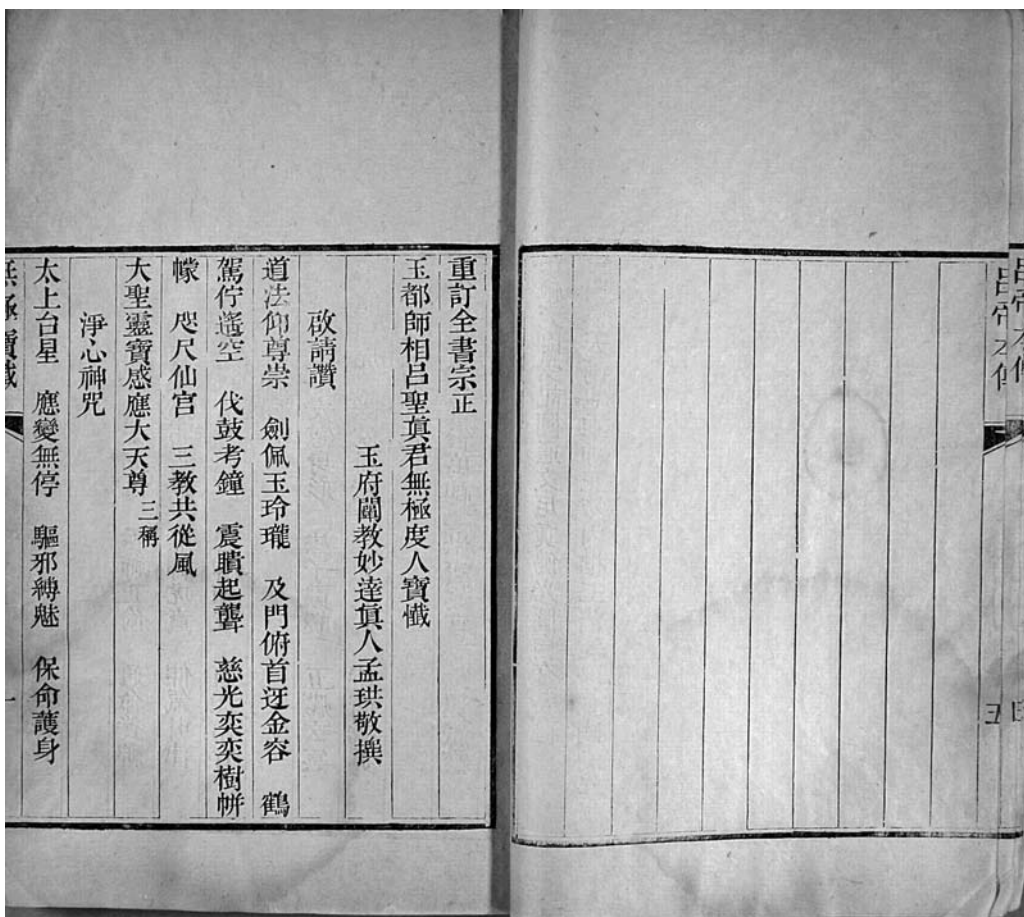 呂帝本傳
呂帝本傳
五
重訂全書宗正
玉都師相呂聖真君無極度人寶懺
玉府闡教妙達真人孟珙敬撰
啟請讚
道法仰尊崇　劍佩玉玲瓏　及門俯首迓金容　鶴
駕佇遙空　伐鼓考鐘　震瞶起聾　慈光奕奕樹帡
幪　咫尺仙宮　三教共從風
大聖靈寶感應大天尊三稱
淨心神咒
太上台星　應變無停　驅邪縛魅　保命護身
無極寶懺
一